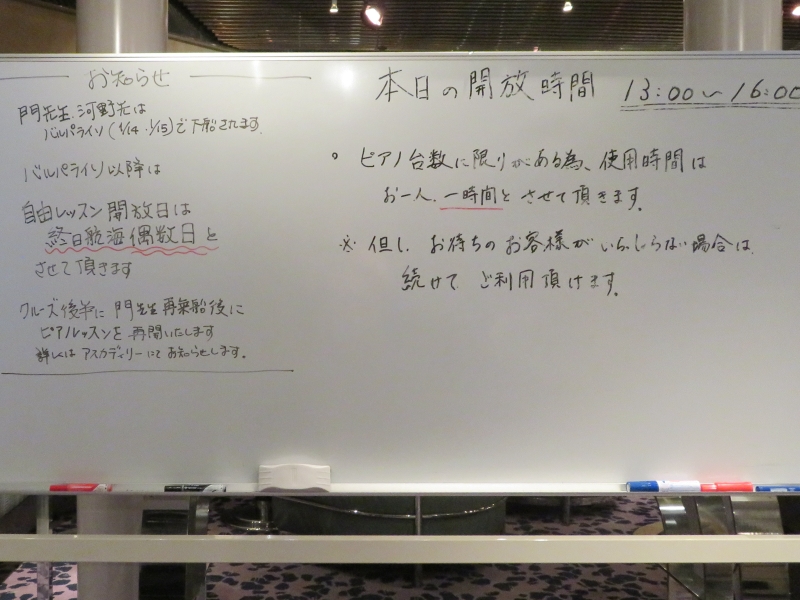 お知らせ
門先生、河野先は
バルパライソ(1/14・1/15)で下船されます。
バルパライソ以降は
自由レッスン開放日は
終日航海偶数日と
させて頂きます
クルーズ後半に門先生再乗船後に
ピアノレッスンを再開いたします
詳しくはアスカデイリーにてお知らせします。
本日の開放時間 13:00~16:00
。ピアノ台数に限りがある為、使用時間は
お一人、一時間とさせて頂きます。
※但し、お待ちのお客様がいらしらない場合は、
続けてご利用頂けます。